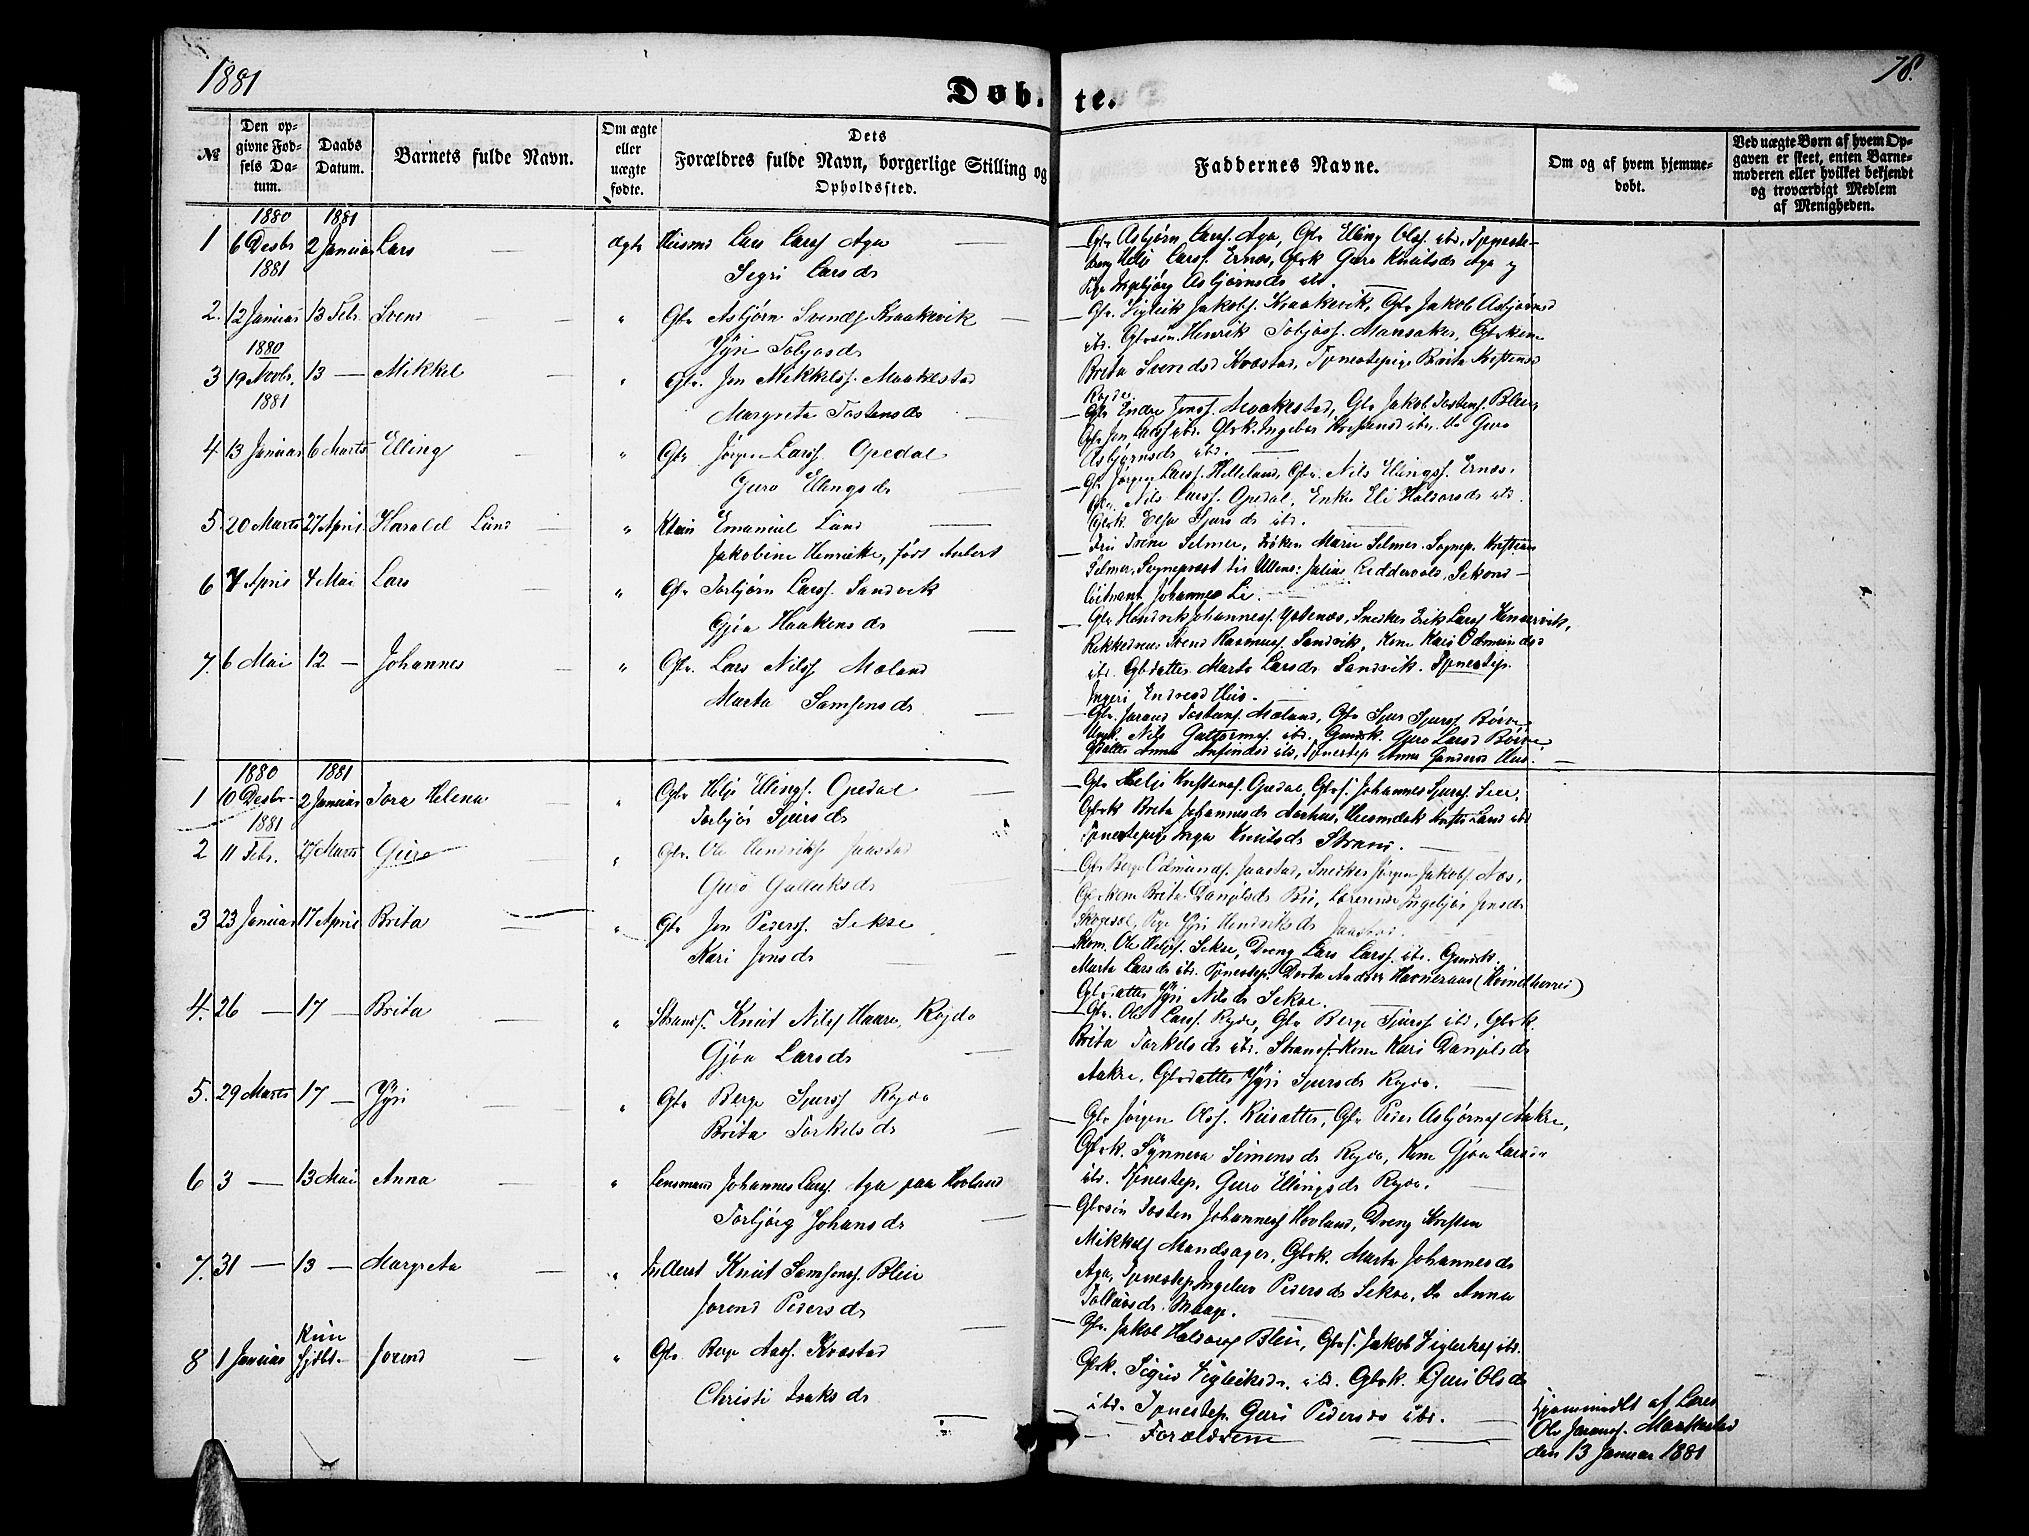 1881
78.
Døbte.
№
Den op-
givne Fød-
sels Da-
tum.
Daabs
Datum.
Barnets fulde Navn.
Om ægte
eller
uægte
fødte.
Dets
Forældres fulde Navn, borgerlige Stilling og
Opholdssted.
Faddernes Navne.
Om og af hvem hjemme-
døbt.
Ved uægte Børn af hvem Op-
gaven er skeet, enten Barne-
moderen eller hvilket bekjendt
og troværdigt Medlem
af Menigheden.
1880 1881
1 6 Desbr 2 Januar Lars ægte Husmd Lars Larss. Aga
1881 Segri Larsdr
Gbr Asbjørn Larss. Aga, Gbr Elling Olss. ibd., Tjeneste-
dreng Helje Larss. Ernæs, Gbrk Guro Knutsdr Aga og
Pige Ingebjørg Asbjørnsdr ibd.
2. 12 Januar 13 Febr. Svend " Gbr Asbjørn Svends. Kraakevik
1880 Yÿri Tobjasdr
Gbr. Vigleik Jakobs. Kraakevik, Gbr Jakob Asbjørns
ibd. Gbrsøn Henrik Tobjass. Mansaker, Gbrkone
Brita Svendsd Kvæstad, Tjenestepige Brita
3 19 Novbr. 13 — Mikkel " Gbr. Jon Mikkelss. Maakestad
1881 Margreta Tostensdr
Røgde.
Gbr Endre Jonss. Maakestad, Gbr Jakob Tostens. Bleie,
Gbr Jon Larss ibd. Gbrk. Ingebor ibd. Do Guro
Asbjørnsdr ibd.
4 13 Januar 6 Marts Elling " Gbr Jørgen Larss. Opedal
Guro Ellingsdr
Gbr Jørgen Larss. Helleland, Gbr. Nils Ellingss. Ernæs,
Gbr. Nils Larss. Opedal, Enke Eli Haldorsdr ibd.
Gbrk. Elsa Sjursdr ibd.
5. 20 Marts 27 April Harald Lund " Emanuel Lund
Jakobine Henrieke, født Aubert
Fru Irene Selmer, Frøken Marie Selmer, Sognep.
Selmer, Sogneprest til Ullens: Julius Riddervold, Sekond-
løitnant Johannes Li.
6 4 April 4 Mai Lars " Gbr Torbjørn Larss. Sandvik
Gjøa Haakensdr
Gbr Hendrik Johanness. Ystenæs, Snedker Erik Larss Kinservik,
Rokkedreier Svend Rasmuss Sandvik, Kone Kari Odmundsd
ibd. Gbdatter Marta Larsdr Sandvik. Tjenestep.
Ingeri Endresd Hus.
7. 6 Mai 12 — Johannes " Gbr. Lars Nilss Mæland
Marta Samsonsdr
Gbr. Jørand Tostens. Mæland, Gbr Sjur Sjurss Børve
Ungk. Nils Guttorms. ibd. Gmdsk. Guro Larsd Børve
Gbdatter Anna ibd, Tjenestep Anna Hus.
1880 1881
1 10 Desbr 2 Januar Tora Helena " Gbr Helje Ellings. Opedal
1881 Torbjør Sjursdr
Gbr Helje Opedal, Gbrs. Johannes Sjurss.
Gbrk Brita Johannesdr Aarhus, ibd
Tjenestepige Inga Knutsdr Strand.
2 11 Febr. 27 Marts Guro " Gbr. Ole Hendriks. Jaastad
Guro Gulleiksdr
Gbr Berge Odmunds. Jaastad, Snedker Jørgen Jakobs. Næs,
Gbrkone Brita Danjelsdr Bu, Lærerinde Ingebjør Jonsdr
Pige Yÿri Hendriksdr Jaastad.
3 23 Januar 17 April Brita " Gbr Jon Pederss. Sekse
Kari Jonsdr
Ole Heljes. Sekse, Dreng Lars Larss. ibd. Gmdsk.
Marta Larsdr ibd. Tjenestep. Dorta Andsdr (Kvindherred)
Gbrdatter Yÿri Nilsdr Sekse.
4. 26 — 17 — Brita " Strands. Knut Nilss Haare, Røgde
Gjøa Larsdr
Gbr. Ole Larss. Røgde, Gbr Berge Sjurss ibd, Gbrk.
Brita Torkelsdr ibd. Strands. Kone Kari Danjelsdr
Aakre, Gbrdatter Yÿri Sjursdr Røgde.
5. 29 Marts 17 — Yÿri " Gbr Berge Sjurss Røgde
Brita Torkelsdr
Gbr Jørgen Olss. Reisæter, Gbr Peder Asbjørns Aakre,
Gbrk. Synneva Simonsdr Røgde, Kone Gjøa Larsdr
ibd. Tjenestep. Guro Ellingsdr Røgde.
6 3 — 13 Mai Anna " Lensmand Johannes Larss. Aga paa Hovland
Torbjørg Johansdr
Gbrsøn Tosten Johanness Hovland, Dreng
Mikkels Mandsager, Gbrk. Marta Johannesdr
Aga, Tjenestep Ingebor Pedersdr Sekse, Do Anna
Tollevsdr Maage.
7. 31 — 13 — Margreta " Knut Samsonss. Bleie
Jorend Pedersdr
Gbr. Jakob Haldors Bleie, Gbrs. Jakob Vigleiks ibd.
Gbrk. Sigrid Vigleiksdr. ibd. Gbrk. Guri Olsdr
ibd. Tjenestep. Guri Pedersdr ibd.
8 1 Januar Kun hjdbt. Jorend " Gbr Berge Aass. Kvæstad
Christi Isaksdr
Forældrene
Hjemmedbt af Lærer
Ole Jøranss. Maakestad
den 13 Januar 1881